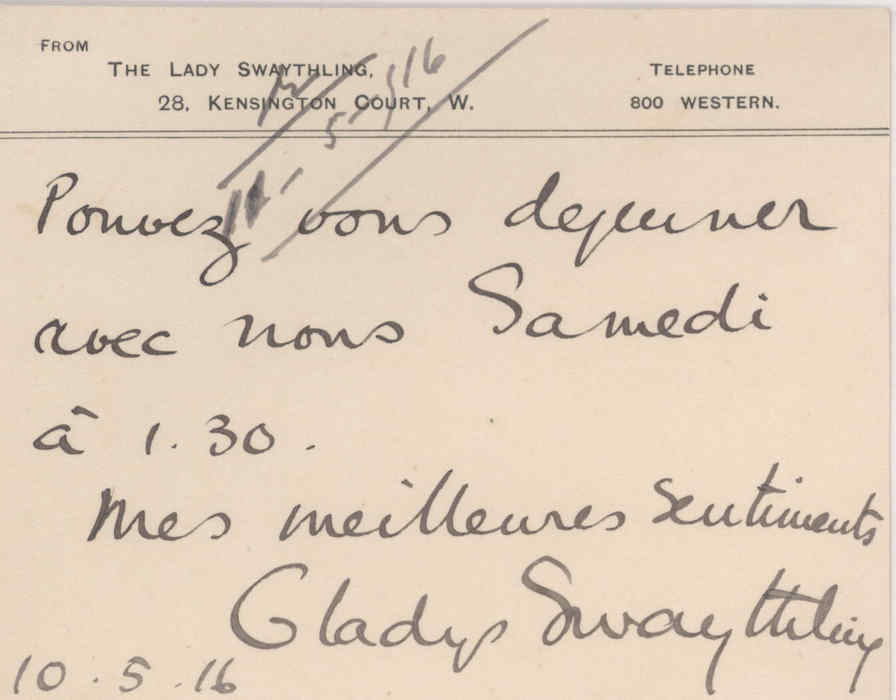 FROM
THE LADY SWAYTHLING,
28, KENSINGTON COURT, W.
TELEPHONE
800 WESTERN.
11 - 5 - 16
Pouvez vous dejeuner
avec nous Samedi
à 1.30.
Mes meilleures sentiments
Gladys Swaythling
10.5.16